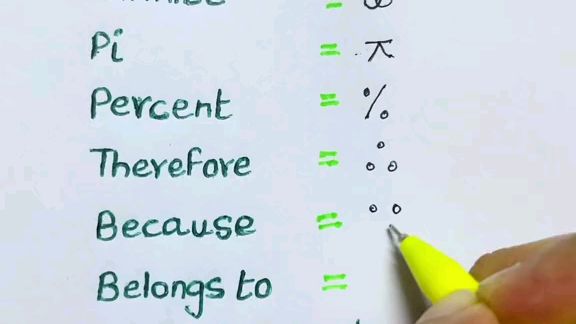 = ∞
Pi = π
Percent = %
Therefore = ∴
Because =
Belongs to =